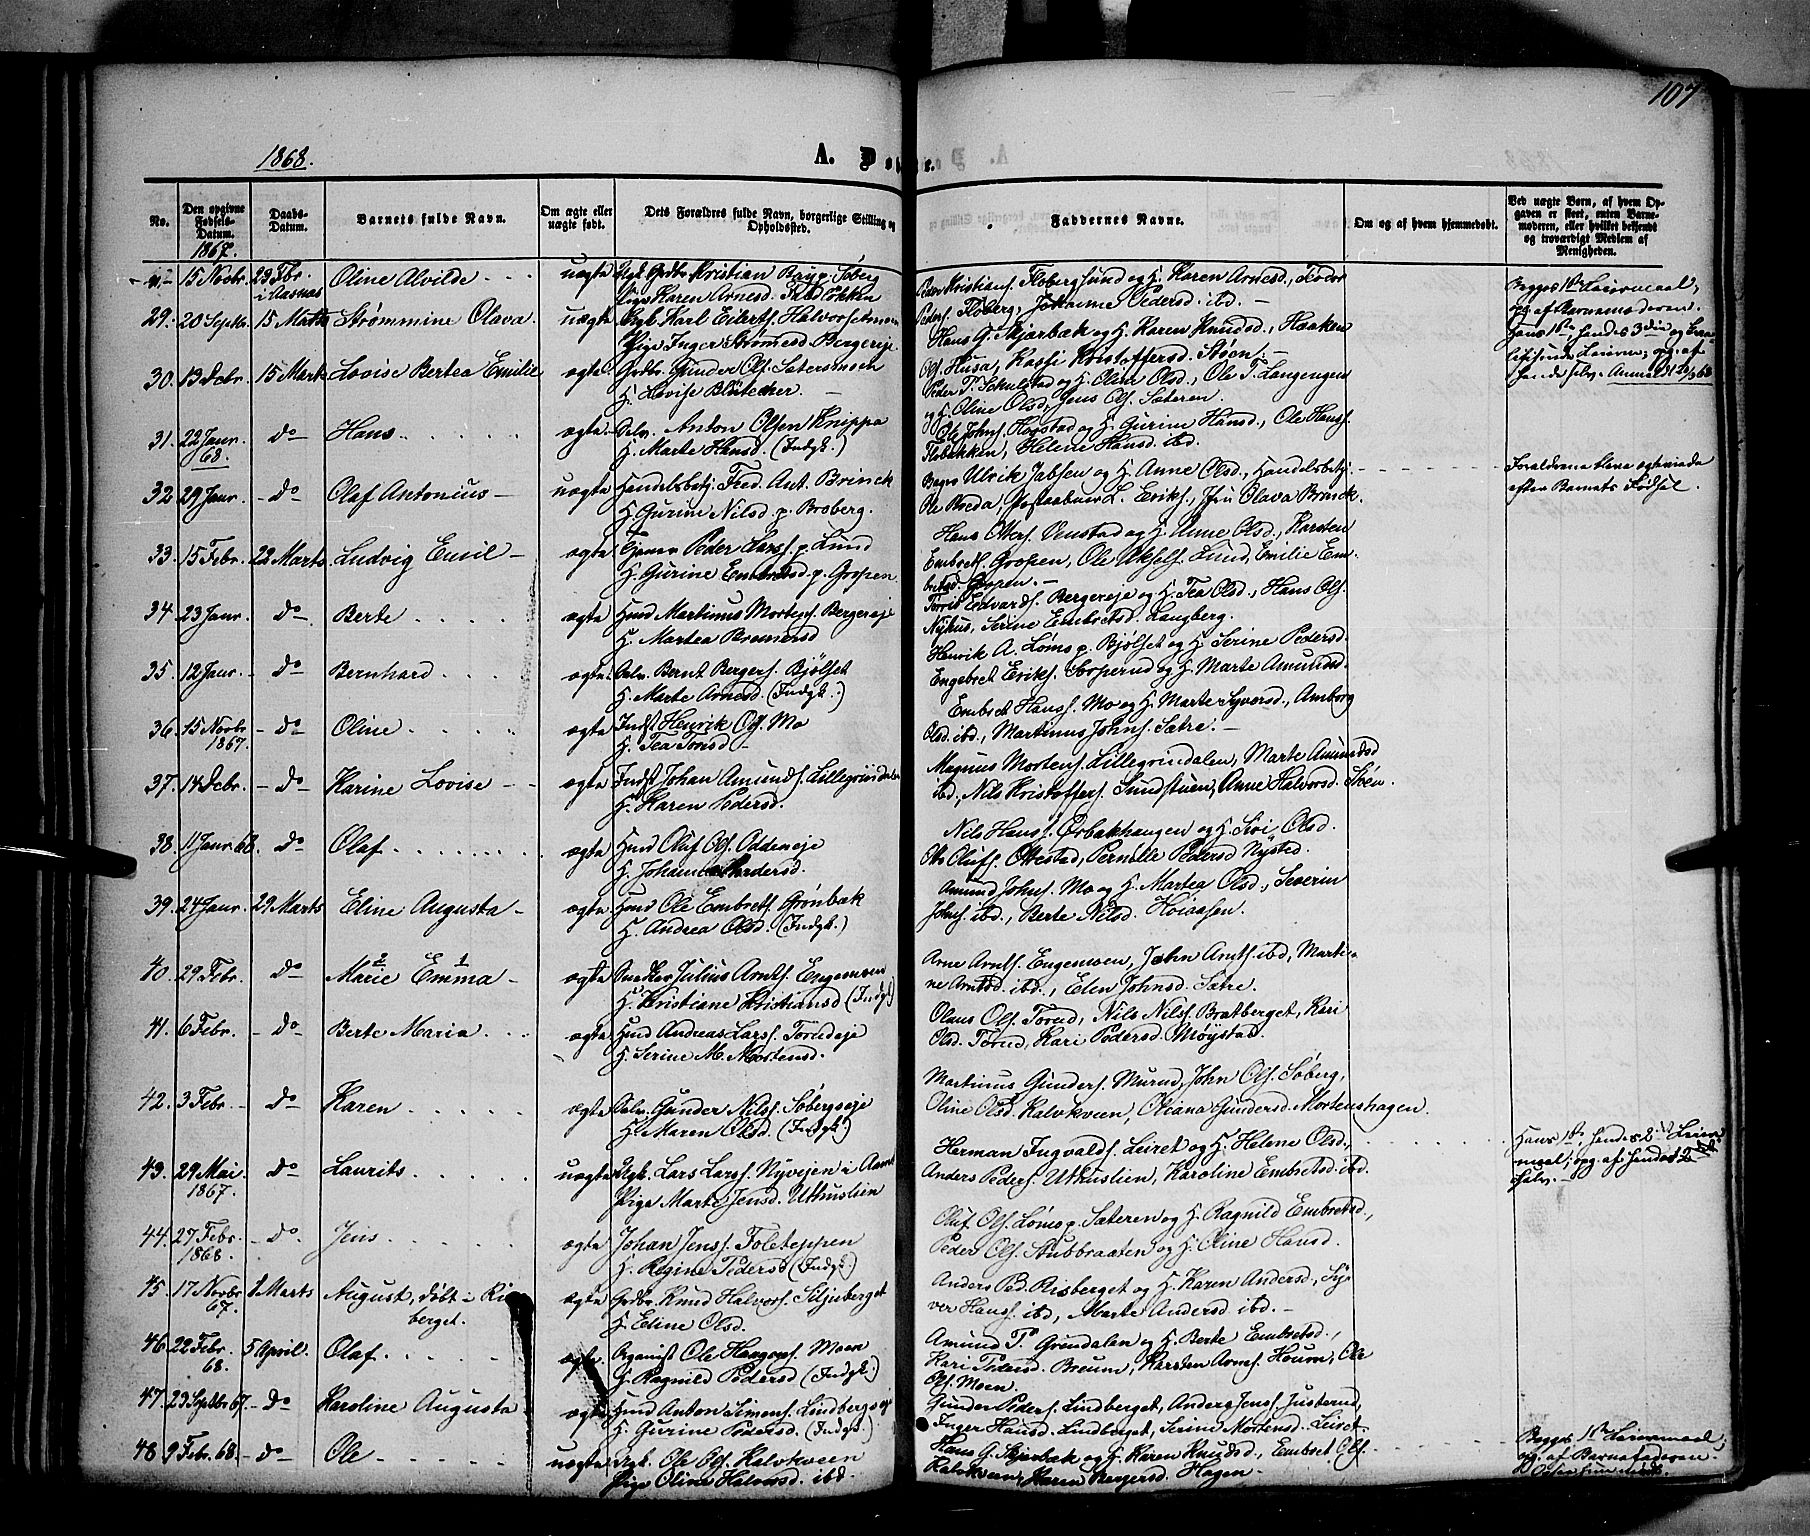 107
1868.
A. Døbte.
No.
Den opgivne Fødsels-Datum. 1867.
Daabs-Datum.
Barnets fulde Navn.
Om ægte eller uægte født.
Dets Forældres fulde Navn, borgerlige Stilling og Opholdssted.
Faddernes Navne.
Om og af hvem hjemmedøbt.
Ved uægte Børn, af hvem Opgaven er skeet, enten Barnemoderen, eller hvilket bekjendt og troværdigt Medlem af Menigheden.
15 Novbr. 23 Fbr. i Aasnas Oline Alvilde uægte Ungk. Grdbr. Kristian
Pige Karen Arnesd.
Peder Kristians. Floberg og H. Karen Arnesd.,
Peders. Floberg, Johanne Pedersd. ibd. —
Begges 1ste Leiermaal, opg. af Barnemoderen.
29. 20 Septbr. 15 Marts Strømmine Olava. uægte Ungk. Karl Eilerts. Halvorsetmoen
Pige Inger Strømesd. Bergereje
Hans G. Skjærbæk og H. Karen Knudsd., Haaken
Ols. Husa, Kasti Kristoffersd. Støen. —
Hans 1ste, hendes 3die
30. 13 Debr. 15 Marts Lovise Bertea Emilie ægte Grdbr. Gunder Ols. Sætersmoen
H. Lovise
Peder T. Skulstad og H. Olea Olsd., Ole T. Langengen
og H. Oline Olsd., Jens Ols. Sæteren.
31. 22 Janr. 68. do Hans ægte Selv. Anton Olsen Knippa
H. Marte Hansd. (Indgk.)
Ole Johns. Hogstad og H. Gurine Hansd., Ole Hans.
Flobakken, Helene Hansd. ibd.
32. 29 Janr. do Olaf Antonius uægte Handelsbetj. Fred. Ant. Brinck
H. Gurine Nilsd. p. Broberg.
Ulrik Jabsen og H. Anne Olsd., Handelsbetj.
Ole Breda, L. Eriks., Olava Brinck.
Forældrene ere ægteviede
efter Barnets Fødsel.
33. 15 Febr. 22 Marts Ludvig Emil ægte Peder Lars. p. Lund
H. Gurine Embretsd. p. Gropen
Hans Otters. Venstad og H. Anne Olsd., Karsten
Embrets. Gropen, Ole Aksels. Lund, Emilie Em-
bretsd. Gropen. —
34. 23 Janr. do Berte ægte Husm. Martinus Mortens. Bergereje
H. Martea Bremersd
Torris Edvards. Bergereje og H. Tea Olsd., Hans Ols.
Nyhus, Serine Embretsd. Langberg.
35. 12 Janr. do Bernhard ægte Selv. Bernt Bergers. Bjølset
H. Marte Arnesd. (Indgk.)
Henrik A. Løms p. Bjølset og H. Serine Pedersd.
Engebret Eriks. Torperud og H. Marte Amundsd.
36. 15 Novbr. 1867. do Oline ægte Indst. Henrik Ols. Mo
H. Tea Torisd
Embret Hans. Mo og H. Marte Syversd., Amborg
Olsd. ibd., Martinus Johns. Sætre. —
37. 14 Debr. do Karine Lovise ægte Indst. Johan Amunds. Lillegrindalen
H. Karen Pedersd.
Magnus Mortens. Lillegrindalen, Marte Amundsd
ibd., Nils Kristoffers. Sundstuen, Anne Halvorsd. Støen.
38. 11 Janr. 68. do Olaf ægte Husm. Oluf Ols. Oddeneje
H. Johanne Andersd.
Nils Hans. Ørbakhaugen og H. Siri Olsd.
Ole Olufs. Ottestad, Pernille Pedersd Nysted.
39. 24 Janr. 29 Marts Eline Augusta ægte Husm. Ole Embrets. Grønbæk
H. Andrea Olsd. (Indgk.)
Amund Johns. Mo og H. Martea Olsd., Severin
Johns. ibd., Berte Nilsd. Høiaasen.
40. 29 Febr. do 2 Marie 1 Emma ægte Snedker Julius Arnts. Engemoen
H. Kristiane Kristiansd (Indgk.)
Arne Arnts. Engemoen, John Arnts. ibd, Marti-
ne Arntsd. ibd., Elen Johnsd. Sætre.
41. 6 Febr. do Berte Maria ægte Husm. Andreas Lars. Torudeje
H. Serine M. Mortensd.
Olaus Ols. Torud, Nils Nils. Bratberget, Kari
Olsd. Torud, Kari Pedersd. Møystad.
42. 3 Febr. do Karen ægte Selv. Gunder Nils. Søbergseje
H. Maren Olsd. (Indgk.)
Martinus Gunders. Murud, John Ols. Søberg,
Oline Olsd. Kalvkveen, Oliana Gundersd. Mortenshagen.
43. 29 Mai 1867. do Laurits uægte Ungk. Lars Lars. Nyvejen i Aamot
Pige Marte Jensd. Utkuslien
Herman Ingvalds. Leiret og H. Helene Olsd.,
Anders Peders. Utkuslien, Karoline Embretsd. ibd.
Hans 1ste, hendes 2det Leier-
maal; opg. af hende
selv. —
44. 27 Febr. 1868. do. Jens ægte Johan Jens. Foleteppen
H. Regine Pedersd (Indgk.)
Oluf Ols. Løms p. Sæteren og H. Ragnild Embretsd.,
Peder Ols. Stubbraaten og H. Oline Hansd.
45. 17 Novbr 67. 1 Marts August, døbt i Ris-
berget. ægte Grdbr. Knud Halvors. Siljuberget
H. Eline Olsd.
Anders Pd. Risberget og H. Karen Andersd., Sy-
ver Hans. ibd, Marte Andersd ibd. —
46. 22 Febr. 68. 5 April. Olaf. ægte. Organist Ole Haagens. Moen
H. Ragnild Pedersd (Indgk.)
Amund T. Grøndalen og H. Berte Embretsd.,
Kari Pedersd. Breum, Karsten Arnes. Hourn, Ole
Ols. Moen.
47. 23 Septbr 67. do Karoline Augusta ægte Husm. Anton Simens. Lindbergseje
H. Gurine Pedersd. (Indgk.)
Gunder Peders. Lindberget, Anders Jens. Justerud,
Inger Hansd. Lindberget, Serine Mortensd. Leiret.
48. 9 Febr. 68. do Ole uægte Ungk. Ole Ols. Kalvkveen
Pige Oline Halvorsd. ibd.
Hans G. Skjærbæk og H. Karen Knudsd., Embret Ols.
Kalvkveen, Karen Bergersd. Hagen.
Begges 1ste Leiermaal,
opg. af Barnefaderen.